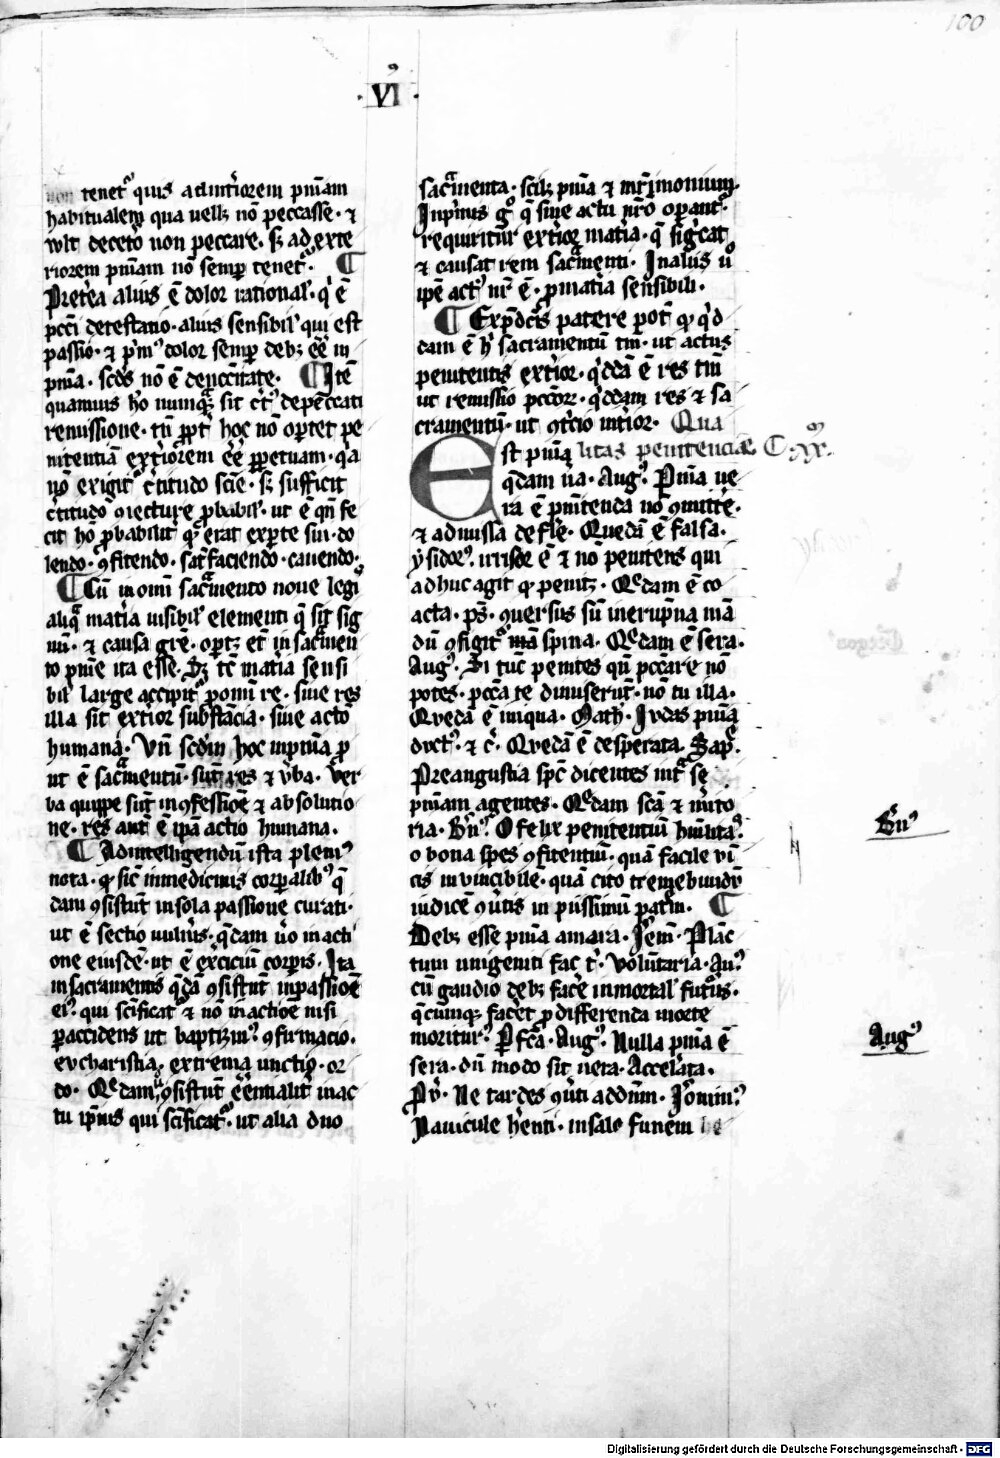 100
·VI⁹·
non tenet᷑ quis ad int̾iorem pn̄iam
habitualem qua uellꝫ nō peccasse · ⁊
wlt decet̾o non peccare. sꝫ ad exte
riorem pn̄iam nō semp̲ tenet᷑. ¶
Pret̾ea alius ē dolor rational̾ · q̾ ē
pccī detestatio · alius sensibil̾ qui est
passio · ⁊ p̾m⁹ dolor semp̲ debꝫ eē̾ in
pn̄ia · scd̄s nō ē de ncc̄itate. ¶ Itē
quamuis ho numqᷓꝫ sit c̾t⁹ de peccati
remissione · tn̄ ꝓpt̾ hoc nō oportet pe
nitentiā ext̾iorem eē̾ ꝑpetuam · qa
nō exigit᷑ c̾titudo scīe · sꝫ sufficit
c̾titudo ꝯiecture ꝓbabil̾ · ut ē qn̄ fe
cit hō ꝓbabilit̾ qᷓ erat exp̲te sui · do
lendo · ꝯfitendo · satͥfaciendo · cauendo ·
¶ Cū in omī sacᷓmento noue legi
aliqᷓ mat̾ia uisibil̾ elementi q̄ sit sig
nū · ⁊ causa gr̄e · oportꝫ et̄ in sacᷓmen
to pn̄ie ita esse. Sꝫ tc̄ matia sensi
bil̾ large accipit᷑ ꝓ omī re · siue res
illa sit ext̾ior substācia · siue actō
humana · Vn̄ scd̄m hoc in pn̄ia ꝓ
ut ē sacᷓmentū · sunt res ⁊ ūba · Ver
ba quippe sūt in ꝯfessiōe ⁊ absolutio
ne · res aut̄ ē ip̄a actio humana.
¶ Ad intelligendū ista pleni⁹
nota · ꝙ sic̄ in medicinis corꝑalib⁹ q̄
dam ꝯsistūt in sola passione curati ·
ut ē sectio uuln̾is · qᷓdam ūo in acti
one eiusdē · ut ē exc̾iciū corꝑis. Ita
in sacramentis qᷓdā ꝯsistūt in passiōe
ei⁹ qui sc̄ificat᷑ ⁊ nō in actiōe nisi
ꝑ accidens ut baptizm⁹ · ꝯfirmacio ·
eucharistia · extrema unctio · or
do · Qᷓdam u̾ ꝯsistūt eēntialit̾ in ac
tu ip̄ius qui sc̄ificat᷑ · ut alia duo
sacᷓmenta · scilꝫ pn̄ia ⁊ mr̄imonium.
In p̾mis gͦ q̄ siue actu nr̄o oꝑant᷑
requiritur ext̾ior matia · q̄ sig̾cat
⁊ causat rem sacᷓmenti. In aliis ūo
ipē act⁹ nr̄ ē · ꝓ matia sensibili.
¶ Ex p̄dc̄is patere pot̄ ꝙ qͥd
dam ē h̾ sacramentū tm̄ · ut actus
penitentis ext̾ior · qͥddā ē res tm̄
ut remissio pccōꝝ · qͥddam res ⁊ sa
cramentū · ut ꝯt̾cio int̾ior. Qua
Est pn̄iaꝝ litas penitencie. C. XX⁹.
qᷓdam ūa · Aug⁹. Pn̄ia ue
ra ē pn̄itenda nō ꝯmitte̾ ·
⁊ admissa defle̾. Quedā ē falsa.
ysidor⁹. irrisor ē ⁊ nō penitens qui
adhuc agit ꝙ penitꝫ. Qᷓdam ē co
acta · ps̄. ꝯuersus sū in erūpna mā
dū ꝯfigit᷑ māi spina. Qᷓdam ē sera.
Aug⁹. Si tūc penites qn̄ pccare nō
potes · pccā te dimiserūt · nō tu illa.
Quedā ē iniqua. Math̾. Judas pn̄ia
duct⁹ · ⁊ c̾. Quedā ē desperata. Sap̄.
Pre angustia sp̄c dicentes int̾ se
pn̄iam agentes. Qᷓdam scā ⁊ m̾ito
ria. Bn̄⁹. O felix penitentiū humilita⁹
o bona spes ꝯfitentiū · quā facile vī
cis invincibilē · quā cito tremebundū
iudicē ꝯūtis in piissimū patrem. ¶
Debꝫ esse pn̄ia amara · Jem̄. Planc̄
tum unigeniti fac t̾. Voluntaria · An⁹
cū gaudio debꝫ face̾ in mortal᷑ futur⁹ ·
q̄cumqꝫ facet̾ ꝓ differenda morte
moritur⁹. Pfc̄a · Aug⁹. Nulla pn̄ia ē
sera · dū modo sit uera. Accel̾ata.
Pū. Ne tardes ꝯūti ad dn̄m. Jomin⁹
Nauicule h̾enti · in salo funem
Bn̄⁹
Aug⁹
Digitalisierung gefördert durch die Deutsche Forschungsgemeinschaft · DFG